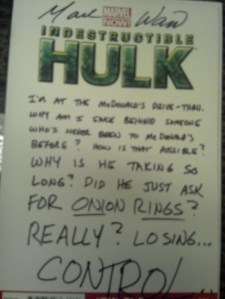 Mark Waid
MARVEL
NOW!
INDESTRUCTIBLE
HULK
I'M AT THE McDONALD'S DRIVE-THRU.
WHY AM I STUCK BEHIND SOMEONE
WHO'S NEVER BEEN TO McDONALD'S
BEFORE? HOW IS THAT POSSIBLE?
WHY IS HE TAKING SO
LONG? DID HE JUST ASK
FOR ONION RINGS?
REALLY? LOSING...
CONTROL